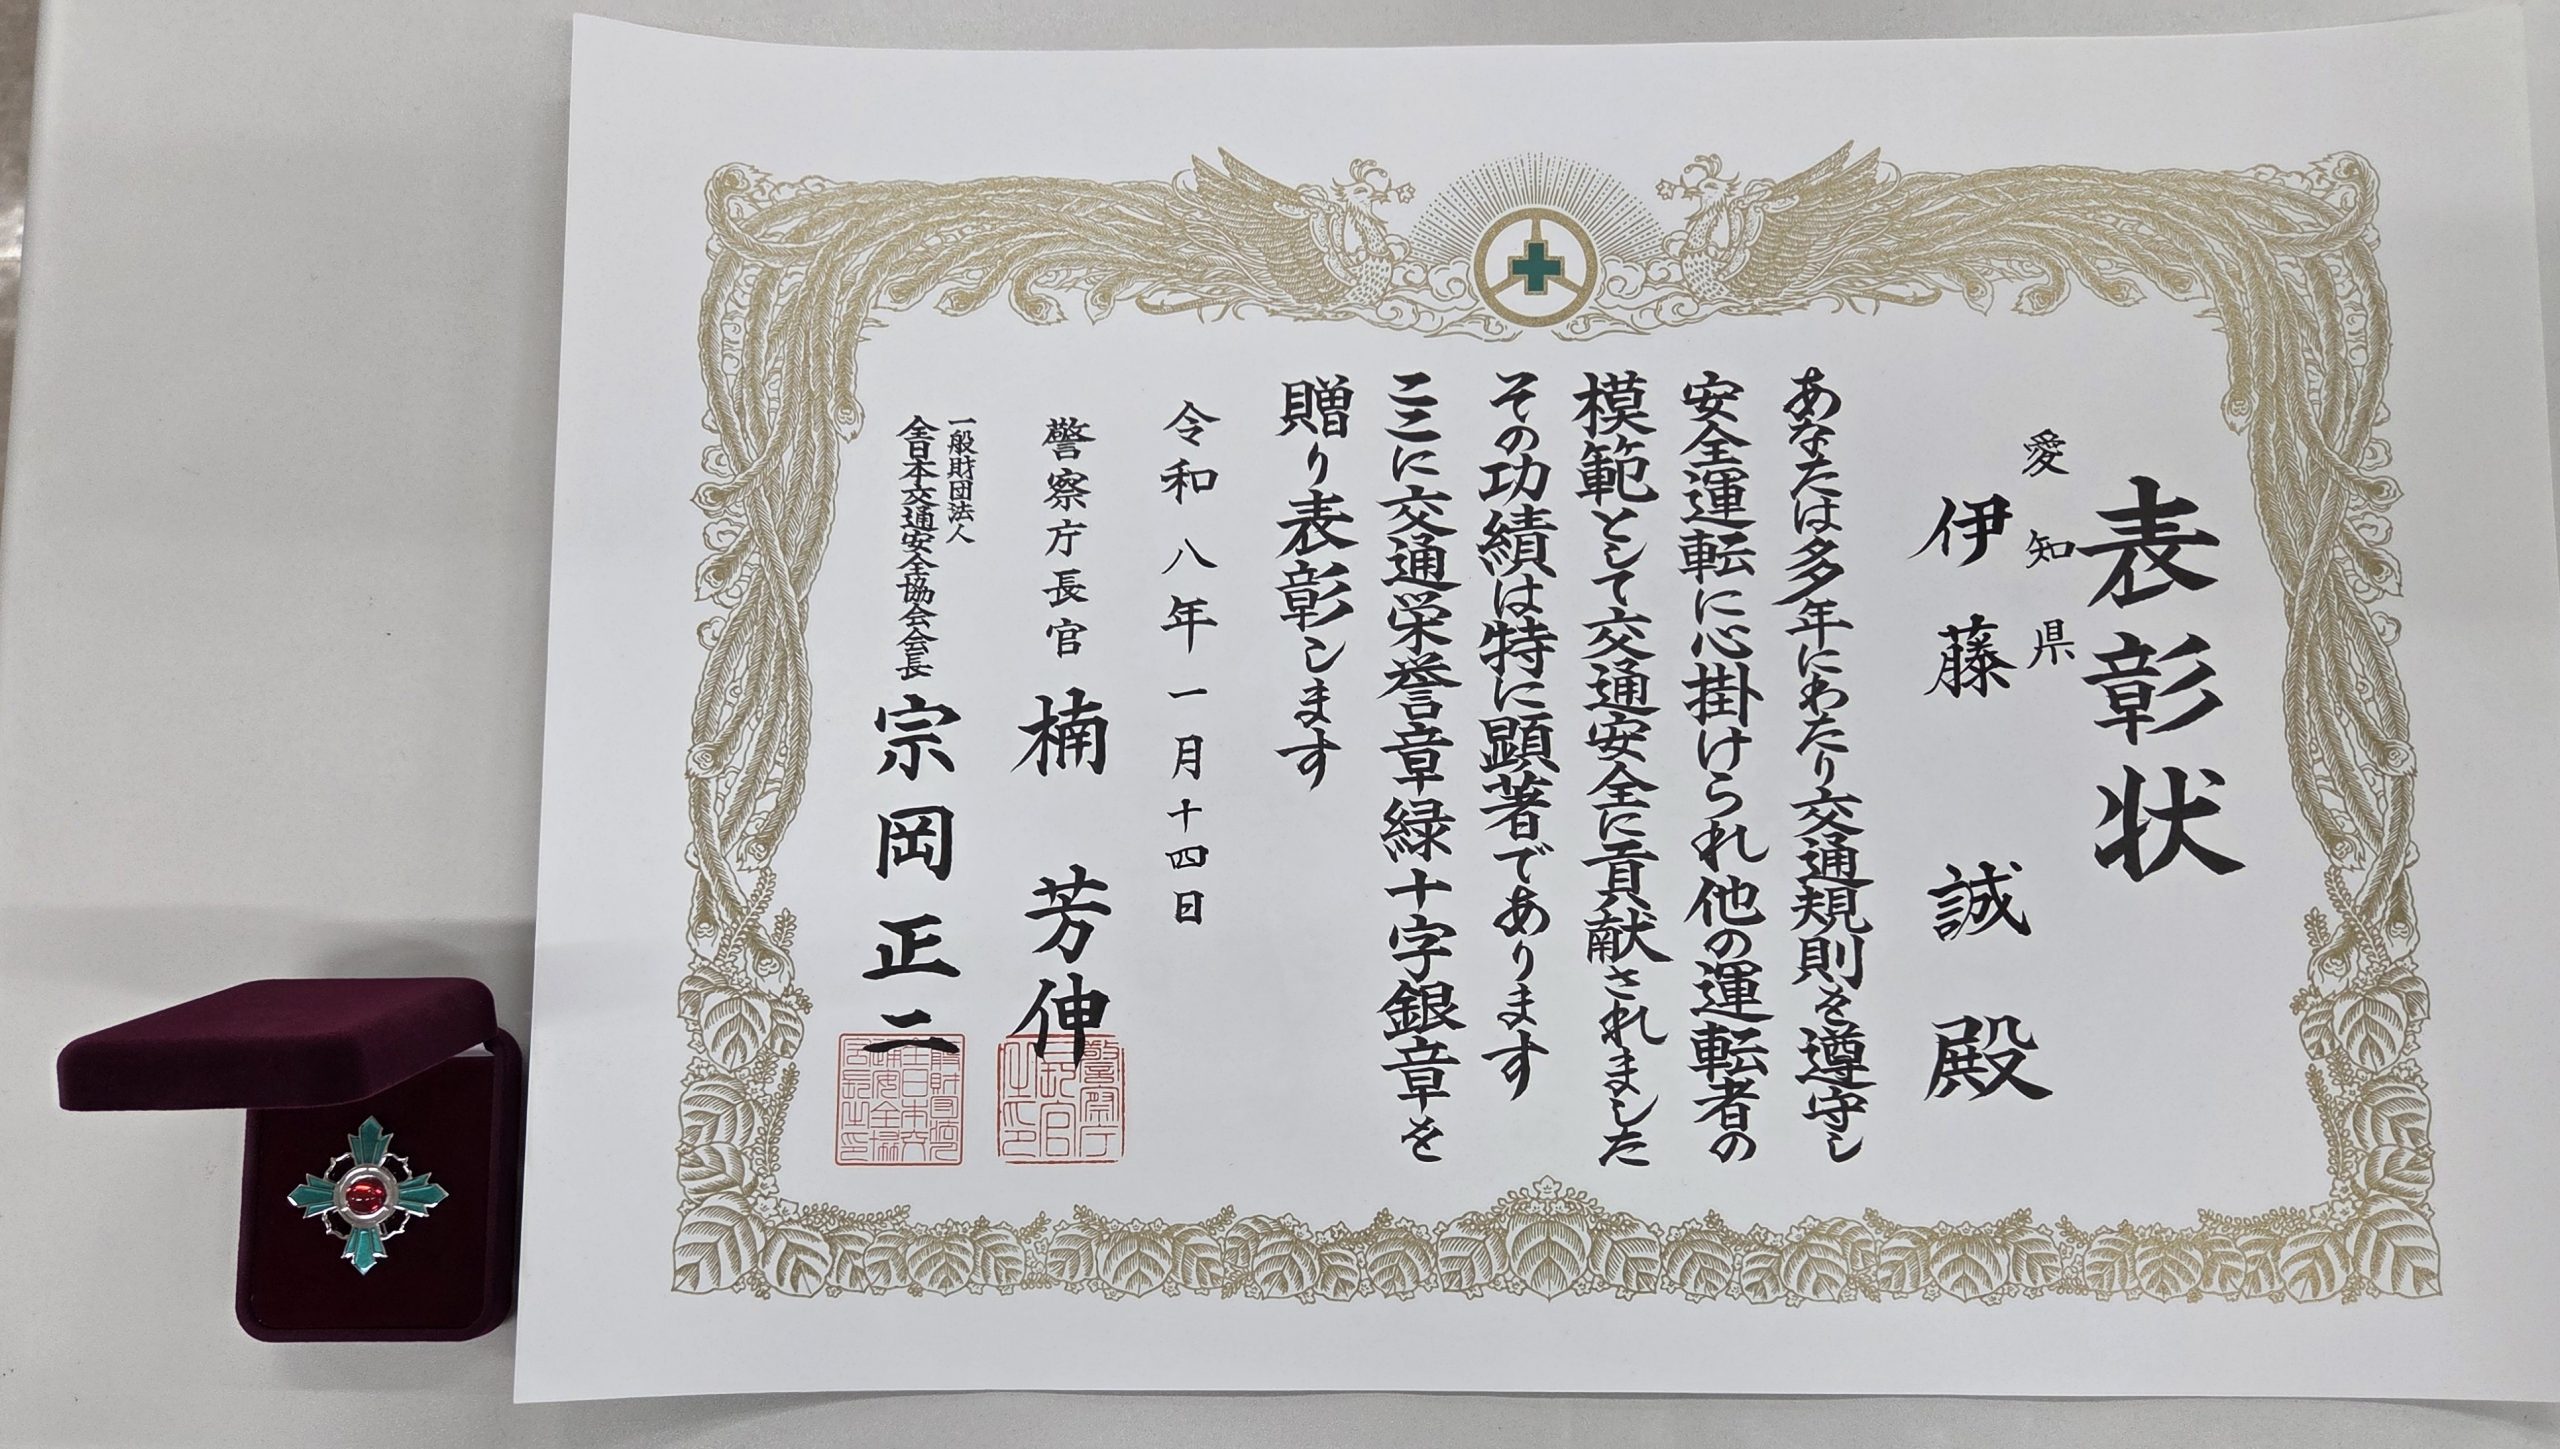 表彰状
愛知県
伊藤 誠 殿
あなたは多年にわたり交通規則を遵守し
安全運転に心掛けられ他の運転者の
模範として交通安全に貢献されました
その功績は特に顕著であります
ここに交通栄誉章緑十字銀章を
贈り表彰します
令和八年一月十四日
警察庁長官 楠 芳伸
一般財団法人
全日本交通安全協会会長 宗岡正二
警察庁長官之印